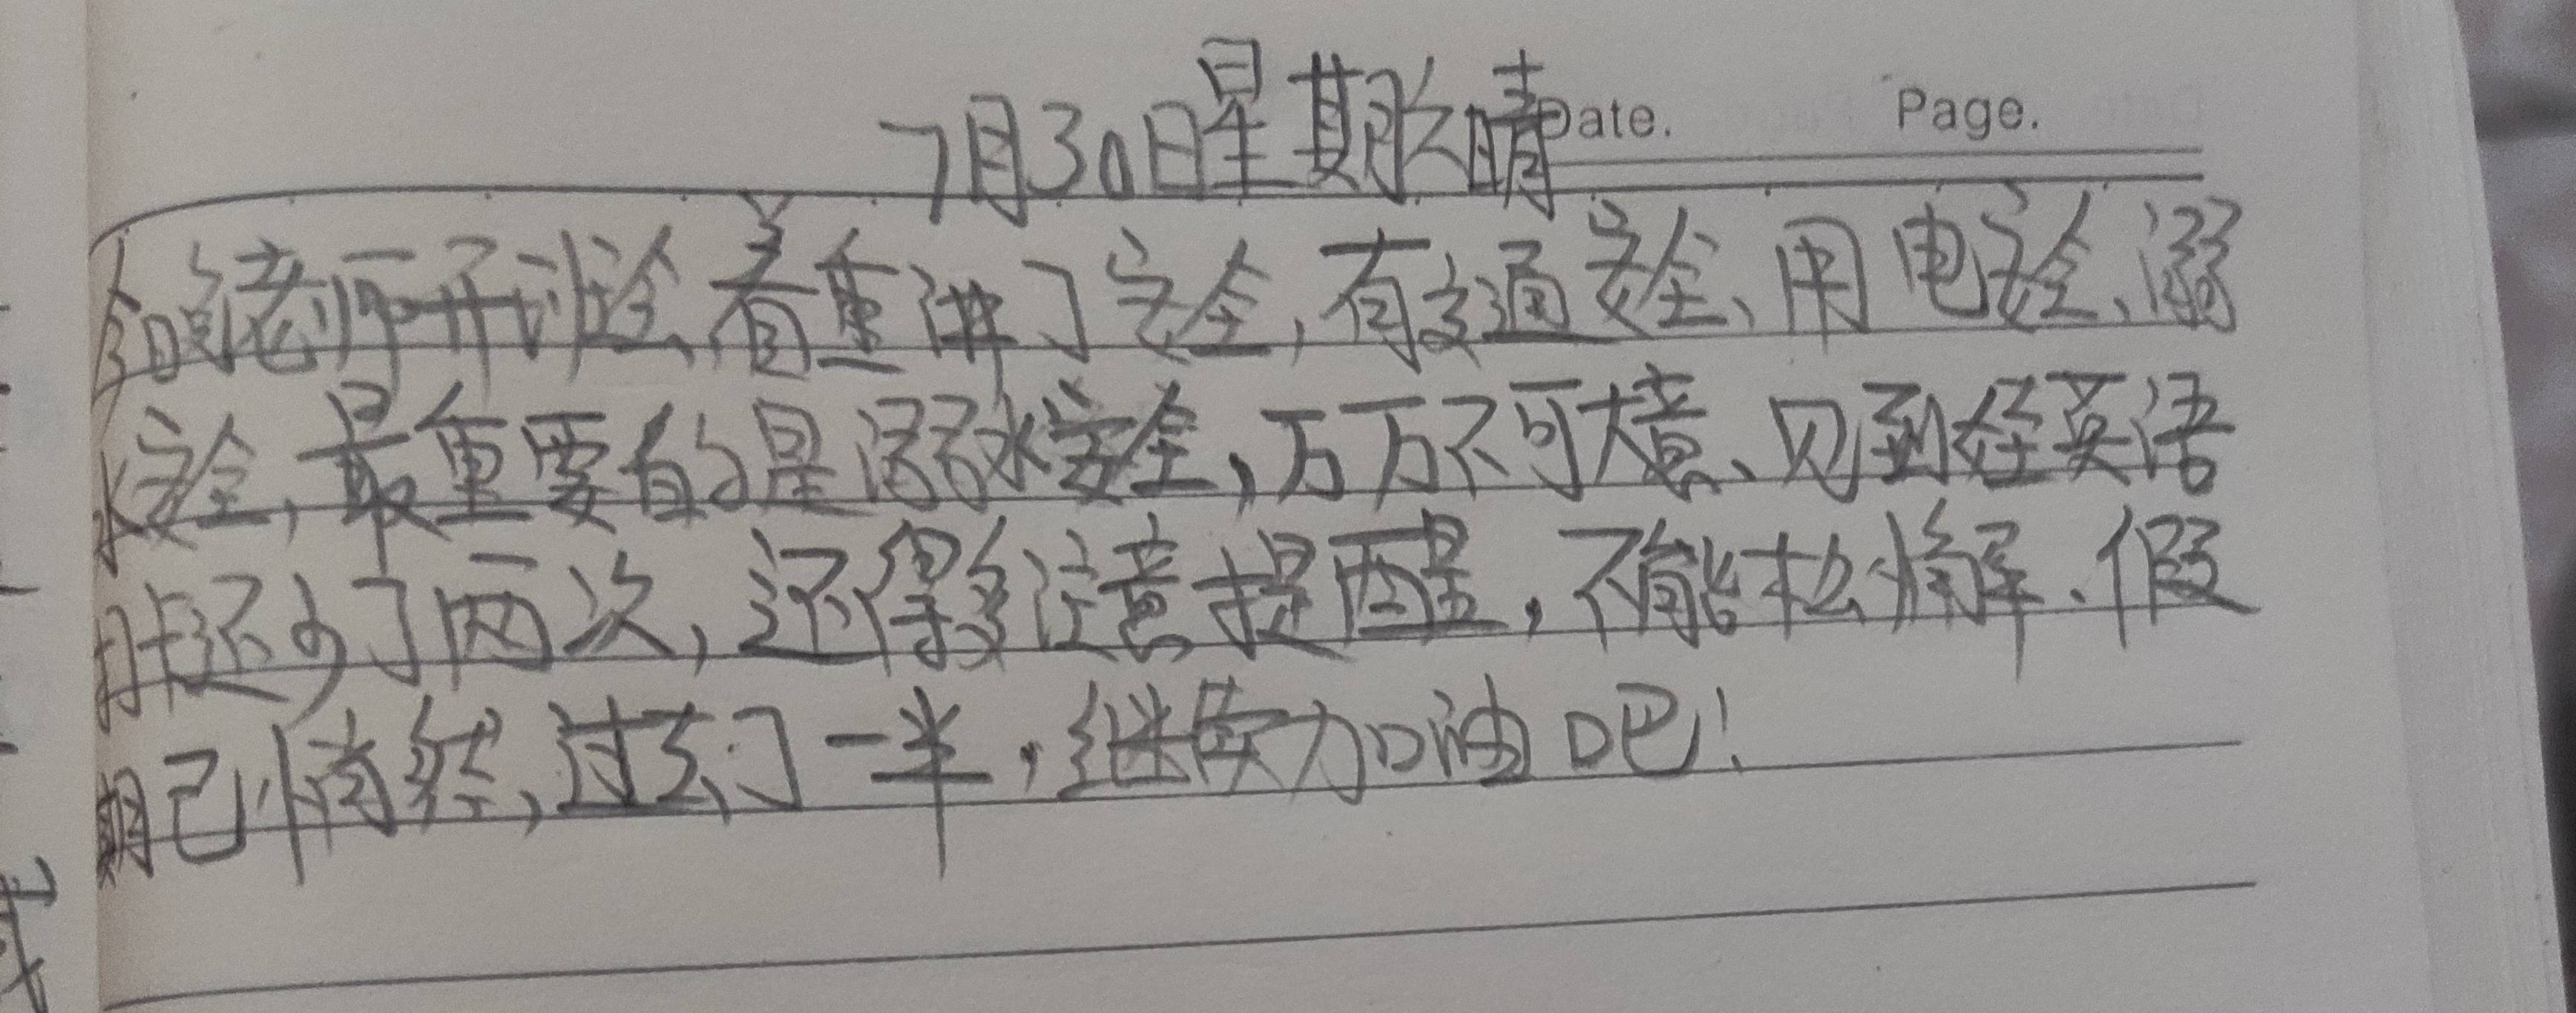 7月30日星期六晴
Date. Page.
今晚老师开讨论会,着重讲了安全,有交通安全、用电安全、溺
水安全,最重要的是溺水安全,万万不可大意、见到在英语
还少了两次,还得多注意提醒,不能松懈、假
期已悄然,过去了一半,继续加油吧!